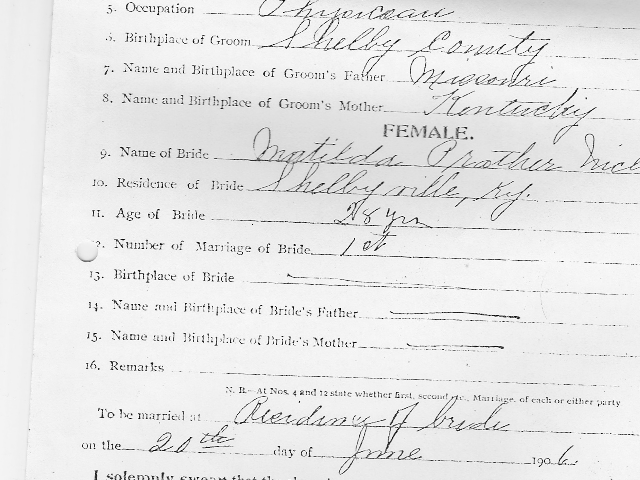 5. Occupation Physician
6. Birthplace of Groom Shelby County
7. Name and Birthplace of Groom's Father Missouri
8. Name and Birthplace of Groom's Mother Kentucky
FEMALE.
9. Name of Bride Matilda Prather
10. Residence of Bride Shelbyville, Ky.
11. Age of Bride 28 yrs
12. Number of Marriage of Bride 1st
13. Birthplace of Bride
14. Name and Birthplace of Bride's Father
15. Name and Birthplace of Bride's Mother
16. Remarks
N. B.—At Nos. 4 and 12 state whether first, second, etc., Marriage, of each or either party
To be married at Residence of bride
on the 20th day of June 1906.
I solemnly swear that the